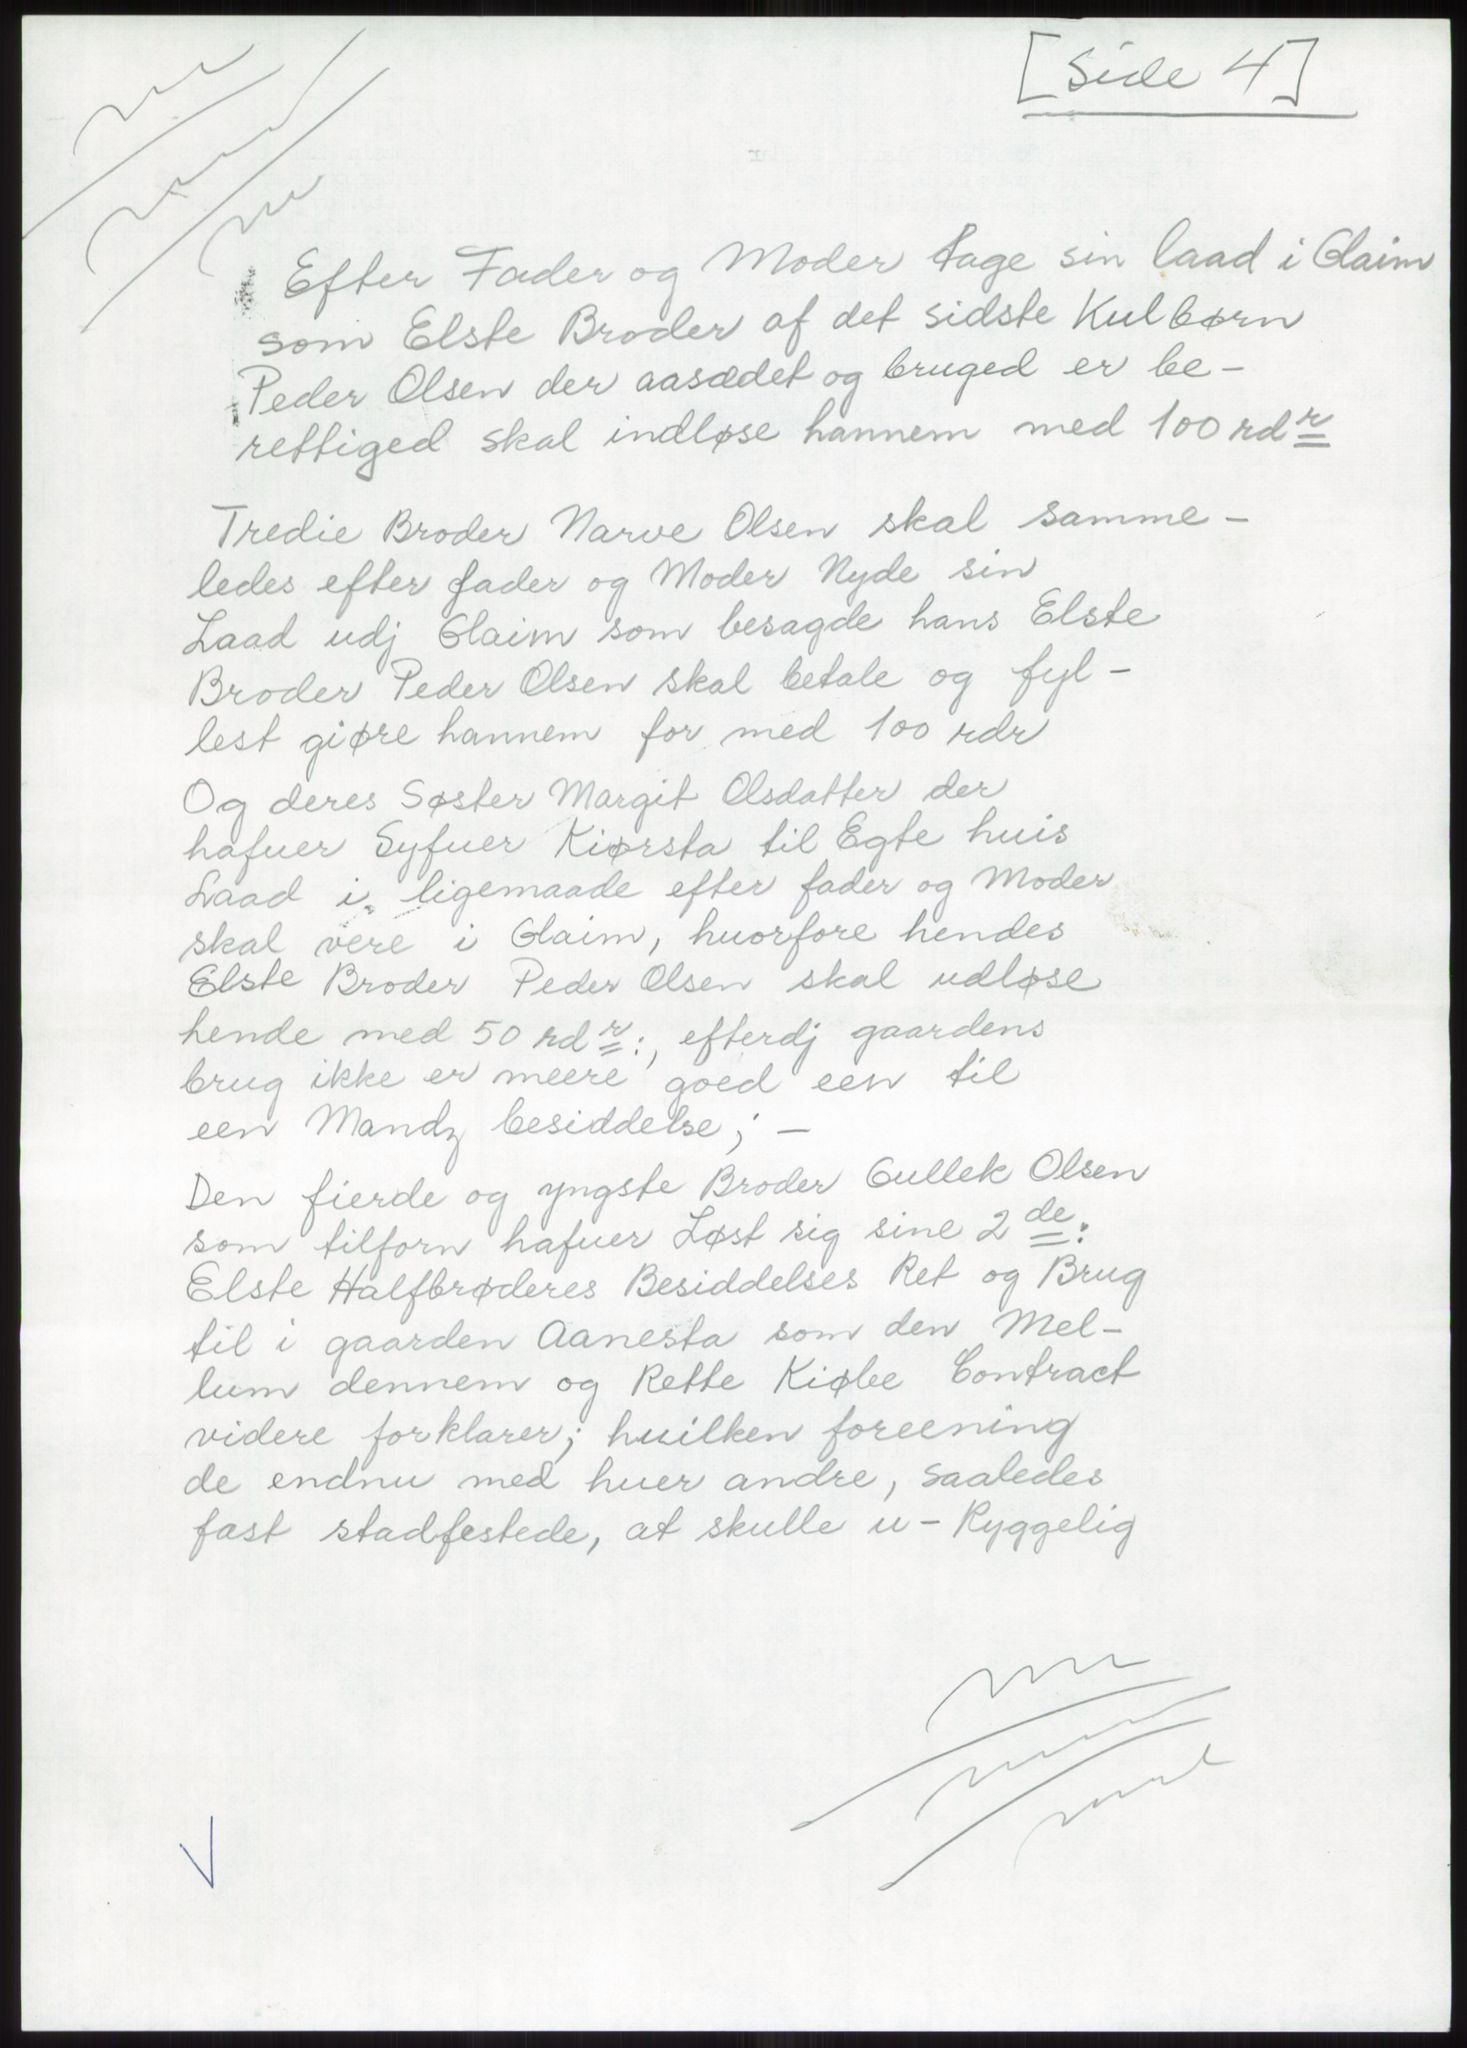 [Side 4]
Efter Fader og Moder tage sin laad i Glaim
som Elste Broder af det sidste Kulbørn
Peder Olsen der aasædet og bruged er be-
rettiged skal indløse hannem med 100 rdr
Tredie Broder Narve Olsen skal samme-
ledes efter fader og Moder Nyde sin
Laad udj Glaim som besagde hans Elste
Broder Peder Olsen skal betale og fyl-
lest giøre hannem for med 100 rdr
Og deres Søster Margit Olsdatter der
hafuer Syfuer Kiørsta til Egte huis
Laad i ligemaade efter fader og Moder
skal vere i Glaim, huorfore hendes
Elste Broder Peder Olsen skal udløse
hende med 50 rdr:, efterdj gaardens
brug ikke er meere goed een til
een Mandz besiddelse; -
Den fierde og yngste Broder Gullek Olsen
som tilforn hafuer Løst sig sine 2de:
Elste Halfbrøderes Besiddelses Ret og Brug
til i gaarden Aanesta som den Mel-
lum dennem og Rette Kiøbe Contract
videre forklarer; huilken foreening
de endnu med huer andre, saaledes
fast stadfestede, at skulle u-Ryggelig